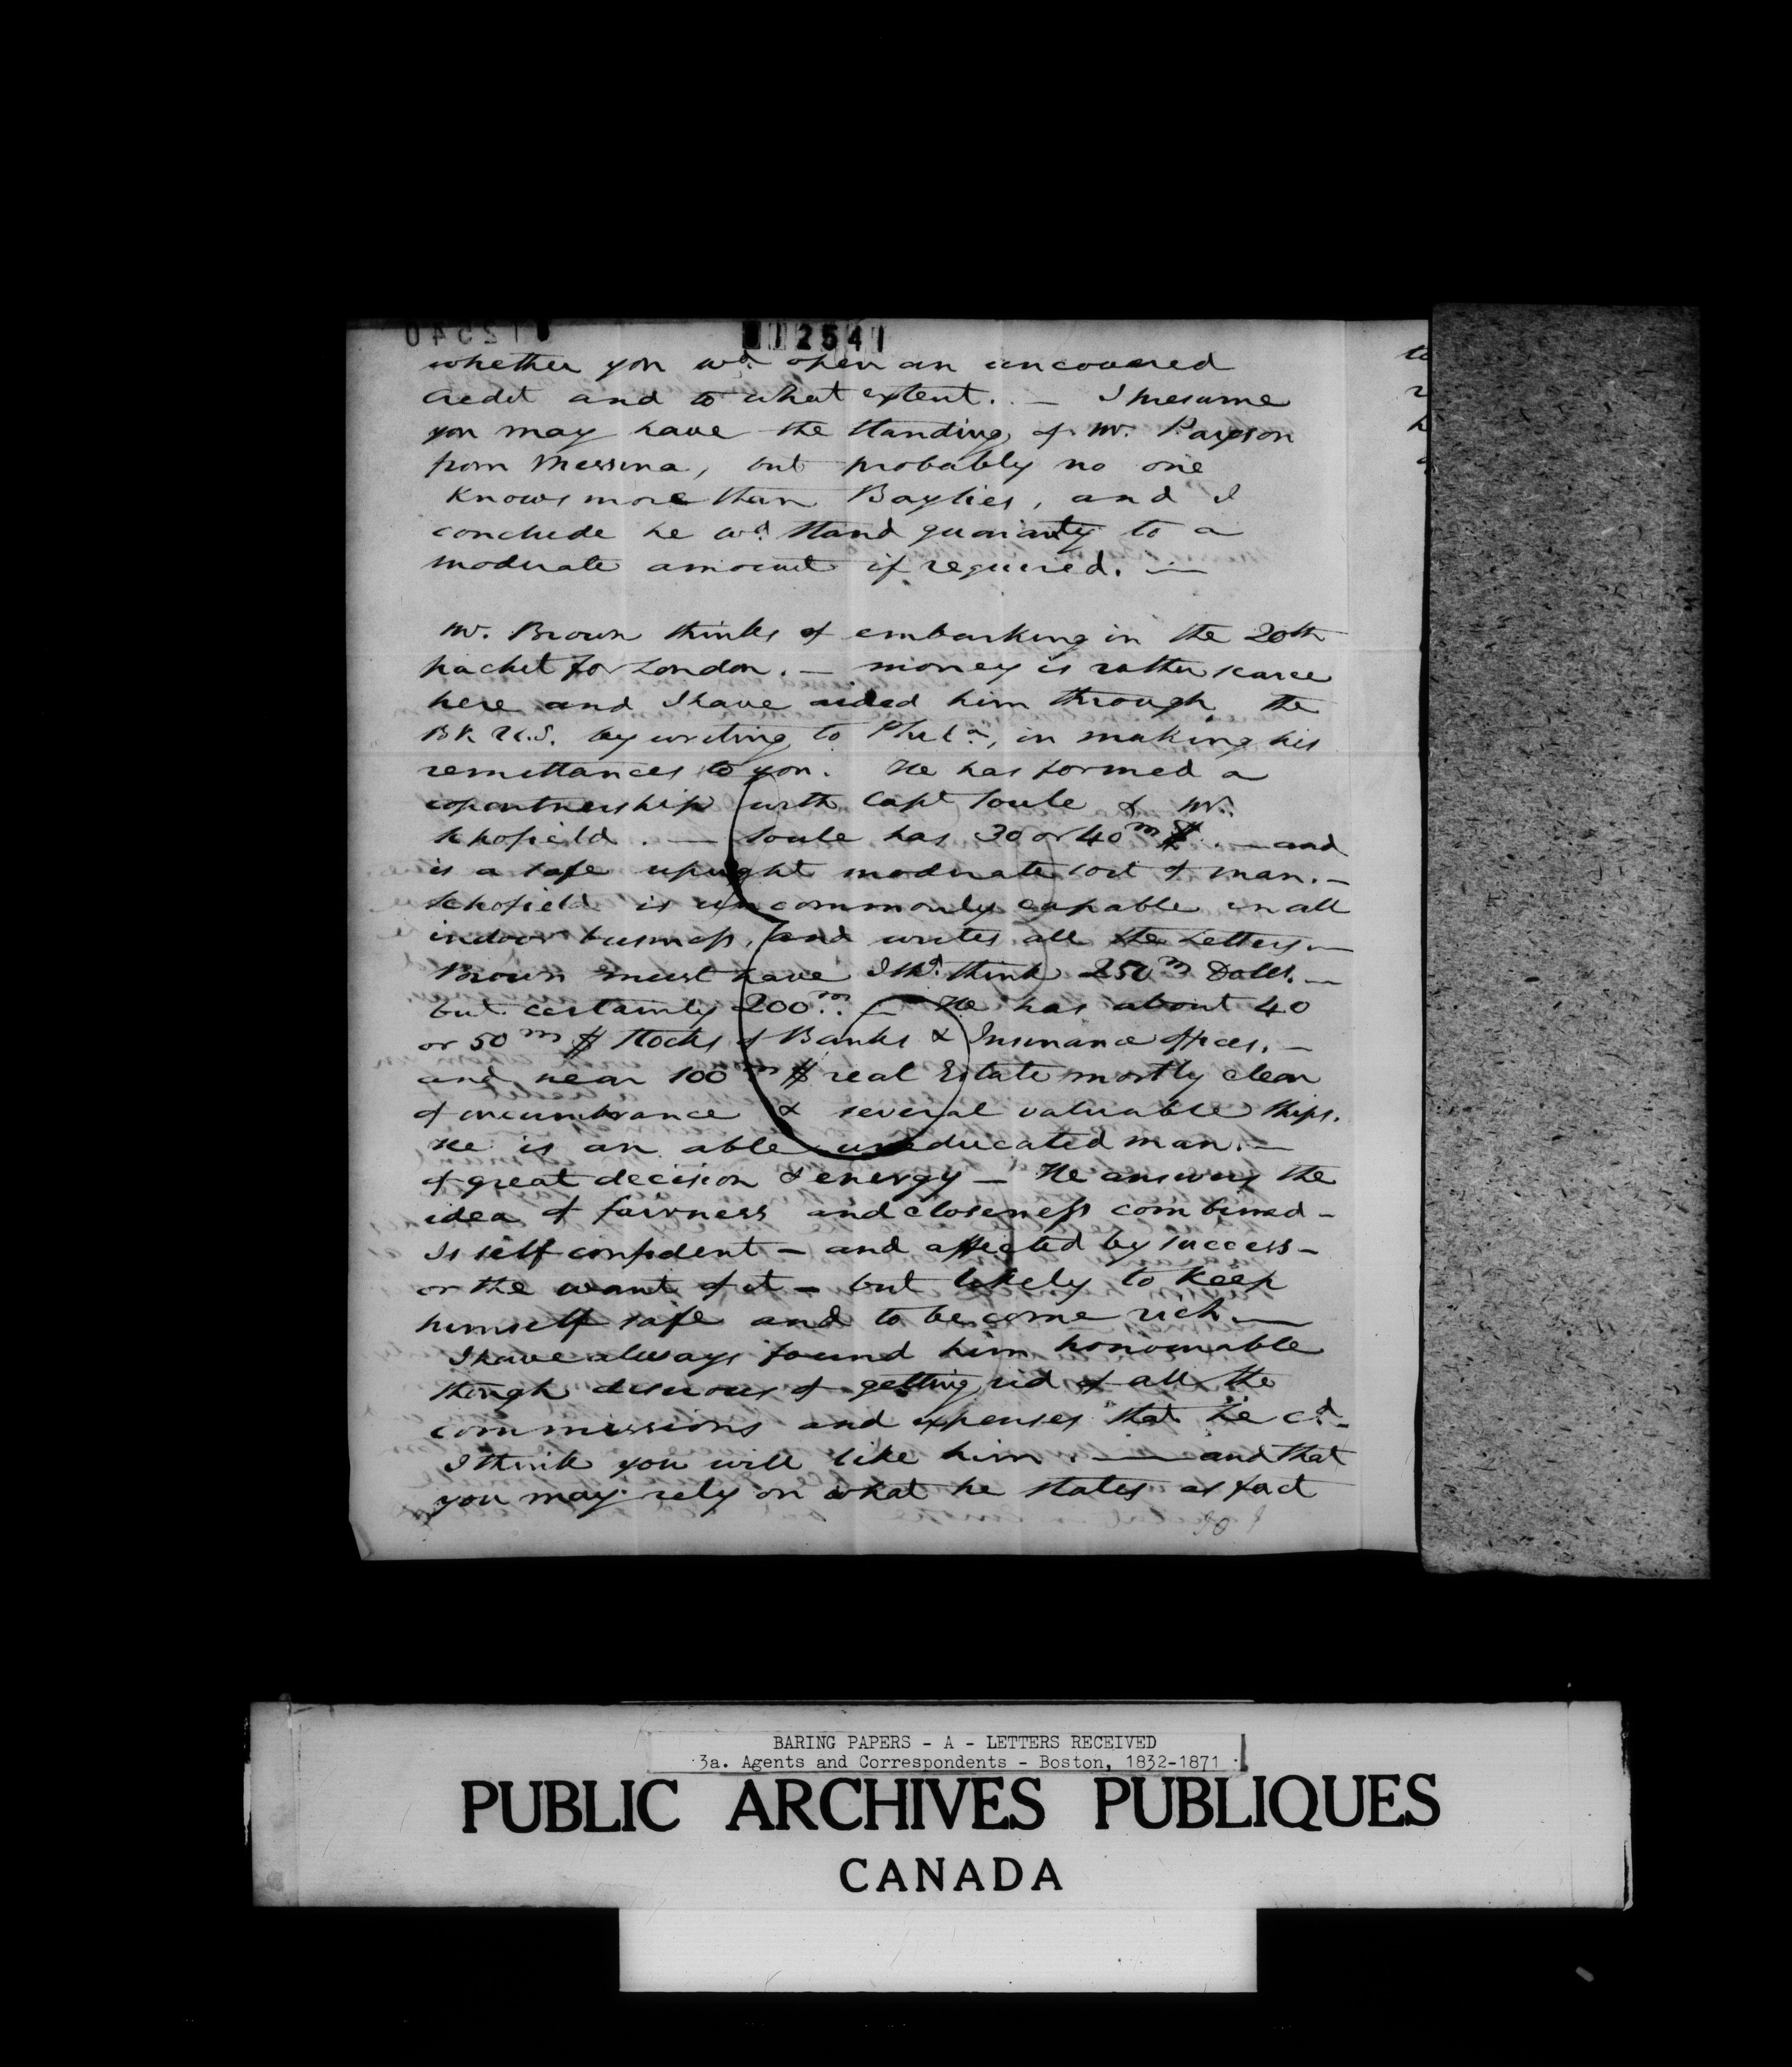 12541
whether you wd. open an uncovered
credit and to what extent. — I presume
you may have the standing of Mr. Payson
from Messina, but probably no one
knows more than Baylies, and I
conclude he wd. stand guaranty to a
moderate amount if required. —
Mr. Brown thinks of embarking in the 20th
packet for London. — money is rather scarce
here and I have aided him through the
Bk U.S. by writing to Phila., in making his
remittances to you. He has formed a
copartnership with Capt Soule & Mr.
Schofield. — Soule has 30 or 40m $. — and
is a safe upright moderate sort of man. —
Schofield is uncommonly capable in all
indoor business, and writes all the Letters —
Brown must have I shd. think 250m Dolls. —
but certainly 200m. — He has about 40
or 50m $ Stocks of Banks & Insurance offices. —
and near 100m $ real Estate mostly clear
of incumbrance & several valuable ships.
He is an able uneducated man. —
of great decision & energy — He answers the
idea of fairness and closeness combined —
Is self confident — and affected by success —
or the want of it — but likely to keep
himself safe and to become rich —
I have always found him honourable
though desirous of getting rid of all the
commissions and expenses that he cd. —
I think you will like him. — and that
you may rely on what he states as fact
BARING PAPERS - A - LETTERS RECEIVED
3a. Agents and Correspondents - Boston, 1832-1871
PUBLIC ARCHIVES PUBLIQUES
CANADA